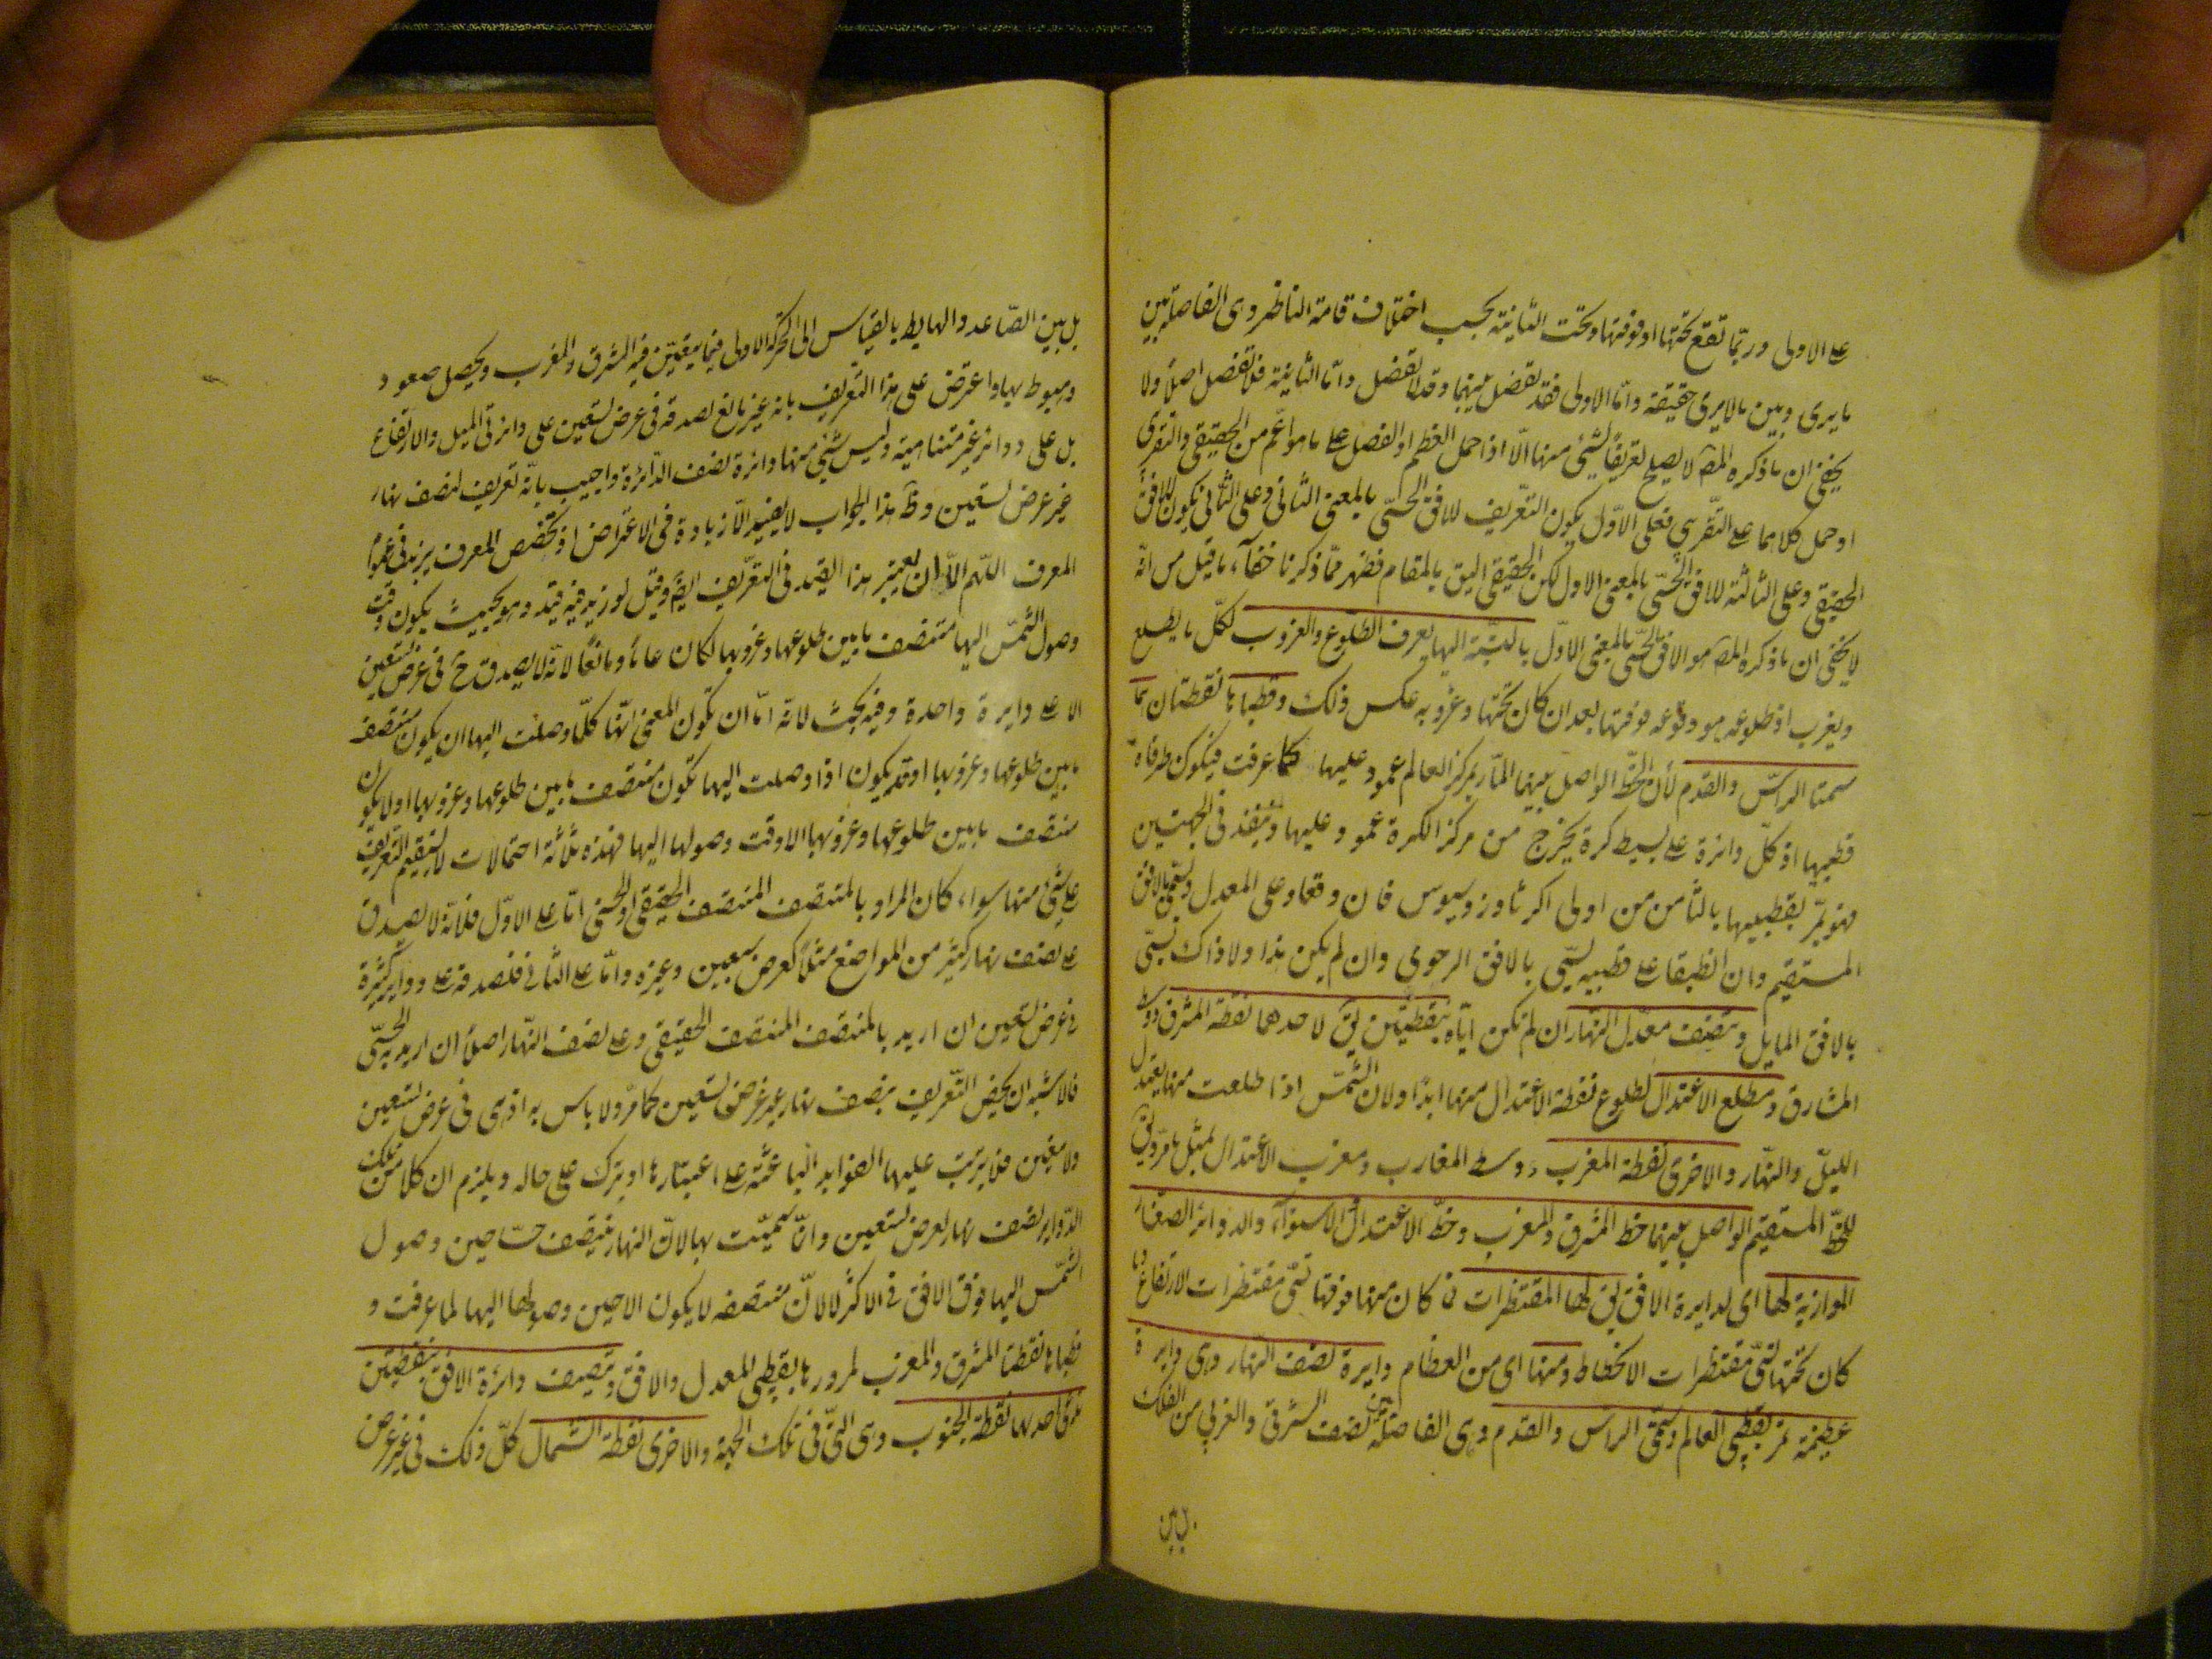 على الاولى وربما تقع تحتها او فوقها وتحت الثانية بحسب اختلاف قامة الناظر وهى الفاصلة بين
ما يرى وبين ما لا يرى حقيقة واما الاولى فقد تفصل بينهما وقد لا تفصل واما الثانية فلا تفصل اصلا ولا
يخفى ان ما ذكره المصـ لا يصلح تعريفا لشئ منها الّا اذا حمل العظم او الفصل على ما هو اعم من الحقيقى والتقريبى
او حمل كلاهما على التقريبى فعلى الاول يكون التعريف للافق الحسّى بالمعنى الثانى وعلى الثانى يكون للافق
الحقيقى وعلى الثالثة للافق الحسّى بالمعنى الاول لكن الحقيقى اليق بالمقام فظهر ممّا ذكرنا خفآء ما قيل من انّه
لا يخفى ان ما ذكره المصـ هو الافق الحسّى بالمعنى الاوّل بالنسبة اليها يعرف الطلوع والغروب لكلّ ما يطلع
ويغرب اذ طلوعه هو وقوعه فوقها بعد ان كان تحتها وغروبه عكس ذلك وقطباها نقطتان هما
سمتا الرأس والقدم لأن الخطّ الواصل بينهما المارّ بمركز العالم عمود عليها كما عرفت فيكون طرفاه
قطبيها اذ كلّ دائرة على بسيط كرة يخرج من مركز الكرة عمود عليها وينفذ فى الجهتين
فهو يمرّ بقطبيها بالثامن من اولى اكر ثاوذوسيوس فان وقعا على المعدل يسمّى بالافق
المستقيم وان انطبقا على قطبيه يسمّى بالافق الرحوى وان لم يكن هذا ولا ذاك يسمّى
بالافق المايل وينصّف معدّل النهار ان لم تكن ايّاه بنقطتين يقـ لاحدهما نقطة المشرق ووسط
المشارق ومطلع الاعتدال لطلوع نقطة الاعتدال منهما ابدا ولان الشمس اذا طلعت منها يعتدل
الليل والنهار والاخرى نقطة المغرب ووسط المغارب ومغرب الاعتدال لمثل ما مرّ ويقـ
للخطّ المستقيم الواصل بينهما خط المشرق والمغرب وخطّ الاعتدال والاستوآء والدوائر الصغار
الموازية لها اى لدايرة الافق يقـ لها المقنطرات فما كان منها فوقها تسمّى مقنطرات الارتفاع وما
كان تحتها تسمّى مقنطرات الانحطاط ومنها اى من العظام دايرة نصف النهار وهى دايرة
عظيمة تمرّ بقطبى العالم وسمتى الرأس والقدم وهى الفاصلة بين نصف الشرقى والغربى من الفلك
بل بين
بل بين الصّاعد والهابط بالقياس الى الحركة الاولى فيما يتعيّن فيه المشرق والمغرب ويحصل صعود
وهبوط بها واعترض على هذا التعريف بانه غير مانع لصدقه فى عرض تسعين على دائرتى الميل والارتفاع
بل على دوائر غير متناهية وليس شئ منها دائرة نصف الدّائرة واجيب بانّه تعريف لنصف نهار
غير عرض تسعين وظـ هذا الجواب لا يفيد الّا زيادة فى الاعتراض اذ تخصّص المعرف يزيد فى عموم
المعرف اللهم الّا ان يعتبر هذا القيد فى التعريف ايضـ وقيل لو زيد فيه قيد وهو بحيث يكون وقت
وصول الشمس اليها منتصف ما بين طلوعها وغروبها لكان عاما ومانعا لانّه لا يصدق ح فى عرض تسعين
الا على دايرة واحدة وفيه بحث لانه امّا ان تكون المعنى انّها كلّما وصلت اليها ان يكون منتصف
ما بين طلوعها وغروبها او قد يكون اذا وصلت اليها تكون منتصف ما بين طلوعها وغروبها او لا يكون
منتصف ما بين طلوعها وغروبها الا وقت وصولها اليها فهذه ثلاثة احتمالات لا يستقيم التعريف
على شئ منها سواء كان المراد بالمنتصف المنتصف الحقيقى او الحسّى امّا على الاوّل فلانّه لا يصدق
على نصف نهار كثير من المواضع مثلا كعرض سبعين وغيره وامّا على الثانى فلصدقه على دواير كثيرة
فى عرض تسعين ان اريد بالمنتصف المنتصف الحقيقى وعلى نصف النّهار اصلا ان اريد به الحسّى
فالاشبه ان يخصّ التّعريف بنصف نهار غير عرض تسعين كما مرّ ولا بأس به اذ هى فى عرض تسعين
ولا تتعين فلا يترتب عليها الفوايد الباعثة على اعتبارها او يترك على حاله ويلتزم ان كلا من تلك
الدّواير نصف نهار لعرض تسعين وانّما سمّيت بها لانّ النهار ينتصف حسّا حين وصول
الشمس اليها فوق الافق فى الاكثر لا لانّ منتصفه لا يكون الا حين وصولها اليها لما عرفت و
قطباها نقطتا المشرق والمغرب لمرورها بقطبى المعدل والافق وتنصف دائرة الافق بنقطتين
يقـ لاحدهما نقطة الجنوب وهى التى فى تلك الجهة والاخرى نقطة الشمال كلّ ذلك فى غير عرض